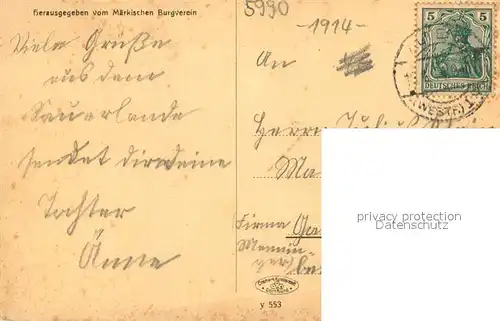 Herausgegeben vom Märkischen Burgverein
5990
-1914-
5 5
DEUTSCHES REICH
(WESTF.)
Viele Grüße
aus dem
Sauerlande
sendet dir deine
Tochter
Änne
An
Herrn
Ma
Firma
privacy protection
Datenschutz
y 553